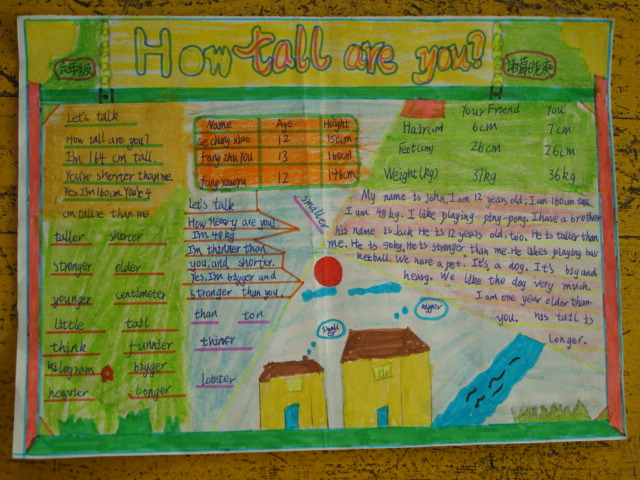 How tall are you?
六年级
诸葛晓爽
Let's talk
How tall are you?
I'm 164 cm tall.
You're shorter than me.
Yes. I'm 160cm. You're 4
cm taller than me.
Name Age Height
12 156cm
fang zhuYou 13 160cm
fang xiaoru 12 146cm
Your Friend You
Hair(cm) 6cm 7cm
Feet(cm) 26cm 26cm
Weight(kg) 37kg 36kg
Let's talk
How heavy are you.
I'm 48kg
I'm thinner than
you, and shorter.
Yes, I'm bigger and
stronger than you.
smaller
My name is John, I am 12 years old, I am 160cm tall.
I am 48kg. I like playing ping-pong. I have a brother
his name is Jack He is 12 years old, too. He is taller than
me. He is 50kg, He is stronger than me. He likes playing bas
ketball. We have a pet. It's a dog. It's big and
heavy. We like the dog very much.
I am one year older than
you. his tail is
Longer.
taller shorter
stronger older
younger centimeter
little tail
think funnier
kilogram bigger
heavier Longer
than ton
thiner
lobster
small
bigger